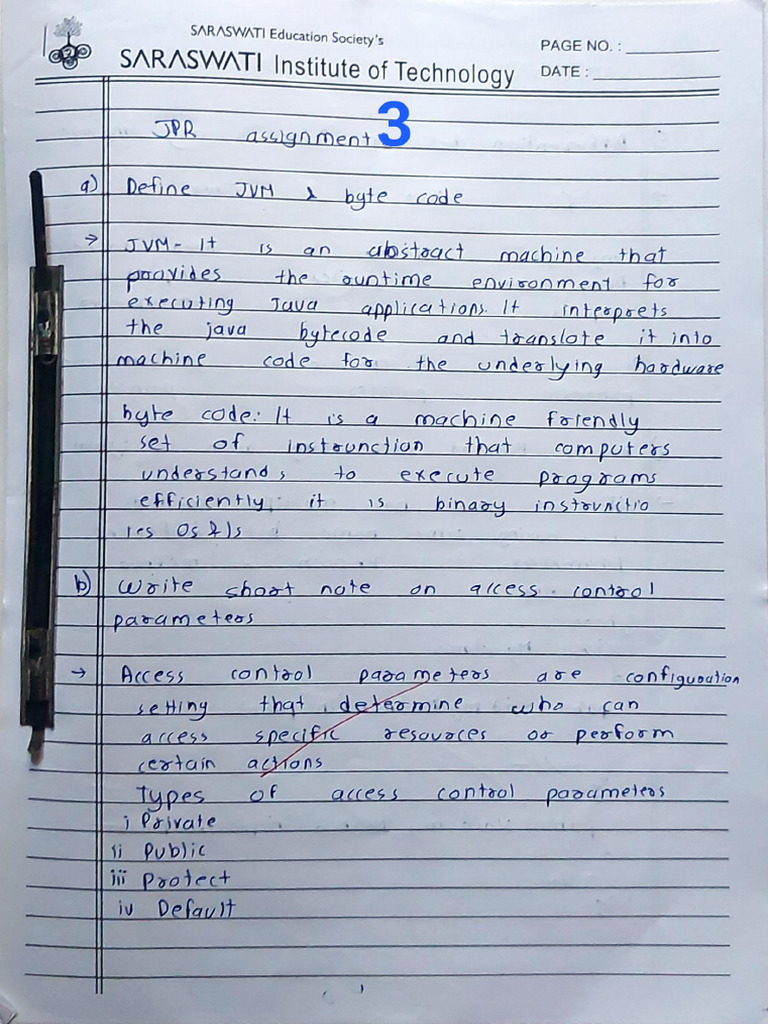 SARASWATI Education Society's
SARASWATI Institute of Technology
PAGE NO. :
DATE :
JPR assignment 3
a) Define JVM & byte code
→ JVM- It is an abstract machine that
provides the runtime environment for
executing Java applications. It interprets
the java bytecode and translate it into
machine code for the underlying hardware
byte code: It is a machine friendly
set of instrunction that computers
understands to execute programs
efficiently. it is binary instrunctio
ies 0s & 1s
b) Write short note on access control
parameters
→ Access control parameters are configuration
setting that determine who can
access specific resources or perform
certain actions
Types of access control parameters
i Private
ii Public
iii Protect
iv Default